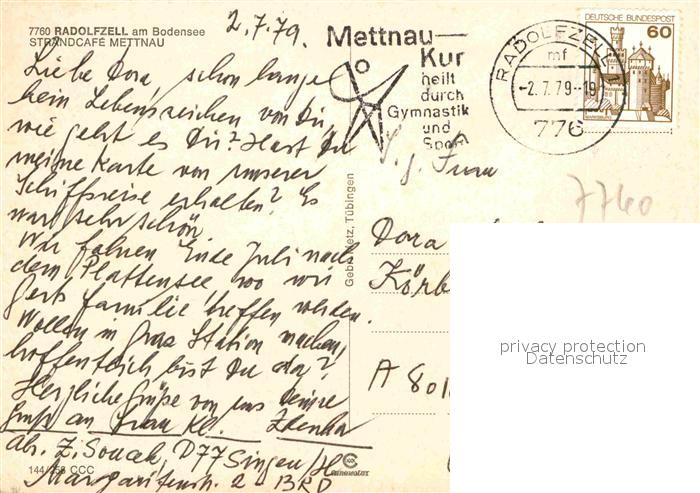 7760 RADOLFZELL am Bodensee
STRANDCAFÉ METTNAU
2.7.79.
Liebe Dora, schon lange
kein Lebenszeichen von Dir,
wie geht es Dir? Hast Du
meine Karte von unserer
Schiffsreise erhalten? Es
war sehr schön.
Wir fahren Ende Juli nach
dem Plattensee, wo wir
Gerts Familie treffen werden.
Wollen in Graz Station machen,
hoffentlich bist Du da?
Herzliche Grüße von uns Deine
Gruß an Frau Kl. Zdenka
Abs. Z. Soucek, D77 Singen/H
Margaritenstr. 2 BRD
144/258 CCC
Mettnau-
Kur
heilt
durch
Gymnastik
und
Sport
RADOLFZELL 1
mf
-2.7.79-19
776
DEUTSCHE BUNDESPOST
60
Gebr. Metz, Tübingen
Frau
7760
Dora
Körb
A 801
privacy protection
Datenschutz